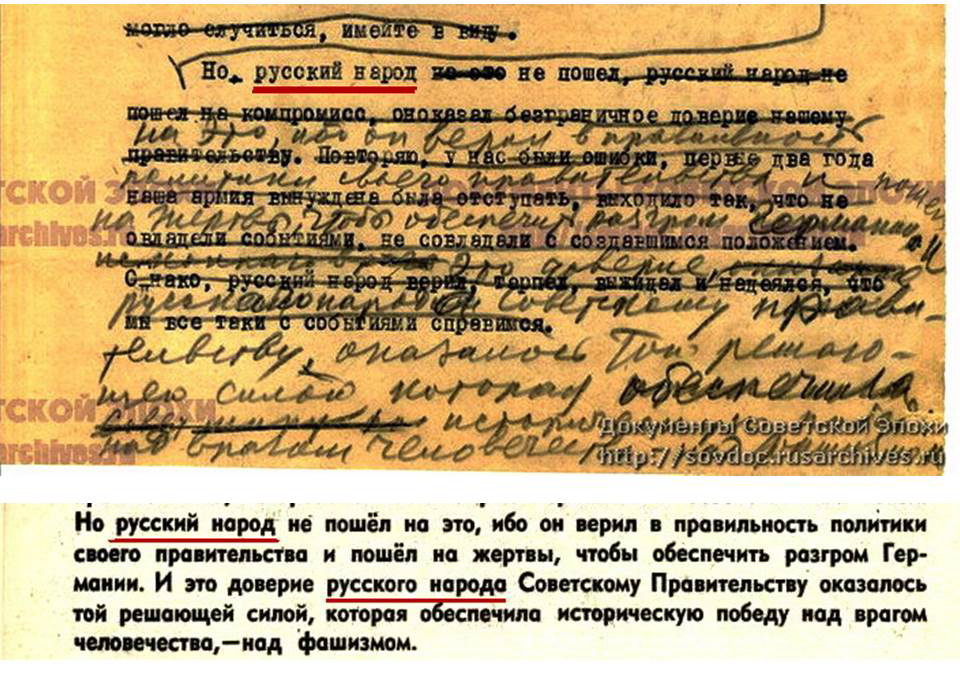 могло случиться, имейте в виду.
Но, русский народ на это не пошел, русский народ не
пошел на компромисс, оноказал безграничное доверие нашему
на это, ибо он верил в правильность
правительству. Повторяю, у нас были ошибки, первые два года
политики своего правительства и пошел
наша армия вынуждена была отступать, выходило так, что не
на жертвы, чтобы обеспечить разгром Германии. И
овладели событиями, не совладали с создавшимся положением.
это доверие
Однако, русский народ верил, терпел, выжидал и надеялся, что
русского народа Советскому прави-
мы все таки с событиями справимся.
тельству, оказалось той решаю-
щей силой, которая обеспечила
историческую победу
над врагом человечества, – над фашизмом
ТСКОЙ ЭПОХИ
archives.ru
Документы Советской Эпохи
http://sovdoc.rusarchives.ru
Но русский народ не пошёл на это, ибо он верил в правильность политики
своего правительства и пошёл на жертвы, чтобы обеспечить разгром Гер-
мании. И это доверие русского народа Советскому Правительству оказалось
той решающей силой, которая обеспечила историческую победу над врагом
человечества,—над фашизмом.